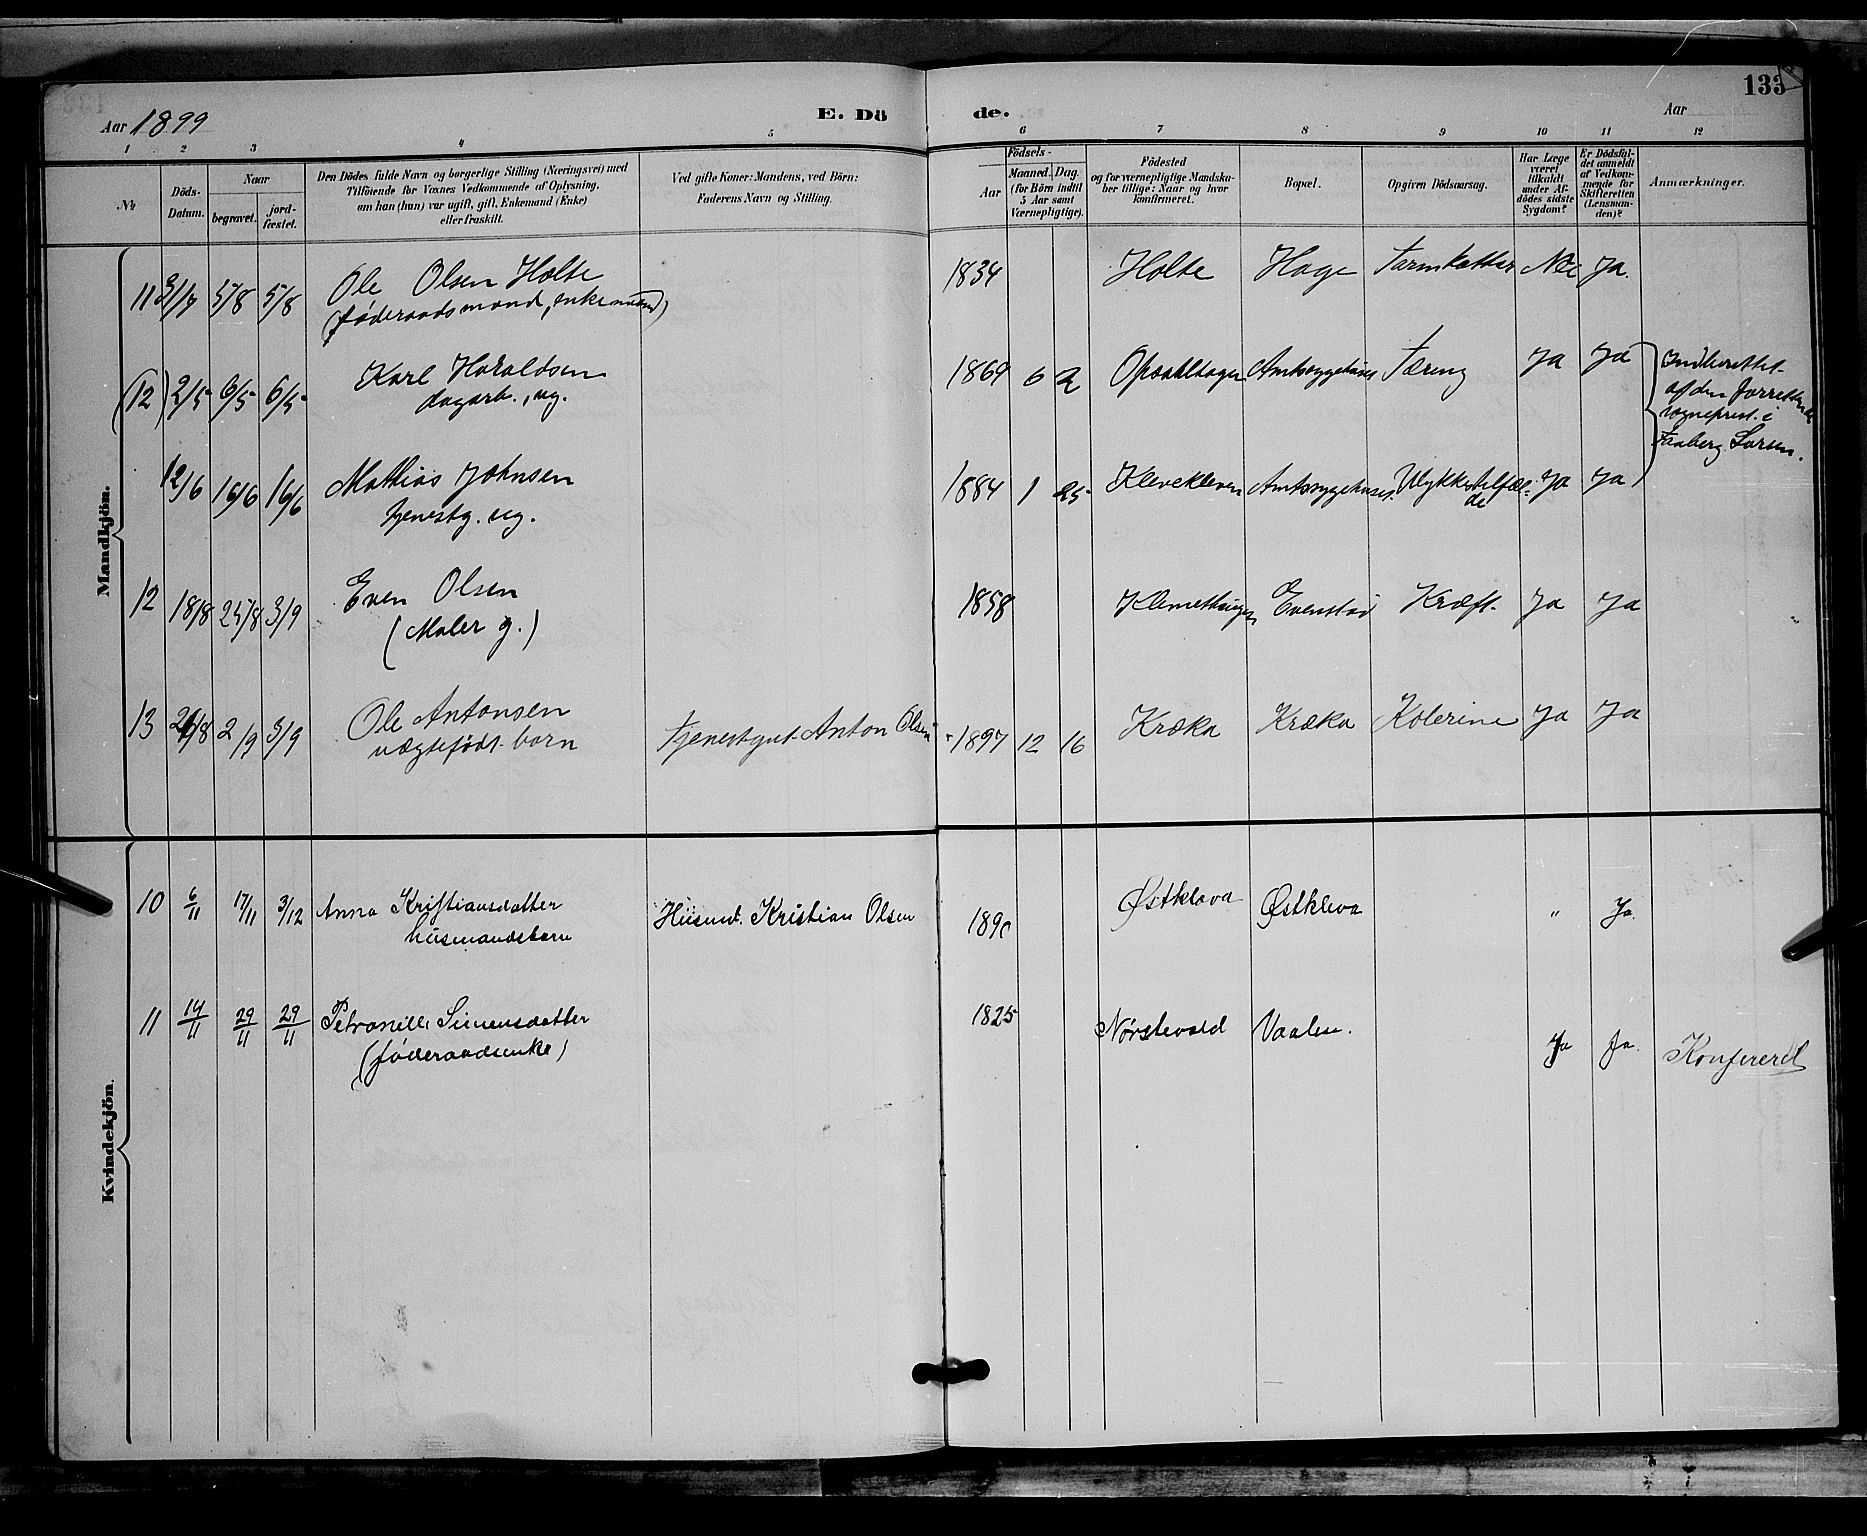 133
Aar 1899 E. Dö de. Aar
1 2 3 4 5 6 7 8 9 10 11 12
№ Döds-Datum. Naar begravet. jord-fæstet. Den Dödes fulde Navn og borgerlige Stilling (Næringsvei) med Tilföiende for Voxnes Vedkommende af Oplysning, om han (hun) var ugift, gift, Enkemand (Enke) eller fraskilt. Ved gifte Koner: Mandens, ved Börn: Faderens Navn og Stilling. Födsels- Aar Maaned. Dag. (for Börn indtil 5 Aar samt Værnepligtige). Födested og for værnepligtige Mandskaber tillige: Naar og hvor konfirmeret. Bopæl. Opgiven Dödsaarsag. Har Læge været tilkaldt under Afdödes sidste Sygdom? Er Dödsfaldet anmeldt af Vedkommende for Skifteretten (Lensmanden)? Anmærkninger.
Mandkjön.
11 31/7 5/8 5/8 Ole Olsen Holte 1834 Holte Hage Tarmkattar Nei Ja.
(föderaadsmand, enkemand)
(12) 2/5 6/5 6/5 Karl Haraldsen 1869 6 2 Opsahlhagen Amtssygehuset Tæring Ja Ja Indberettet
dagarb., ug. af den forrettende
sogneprest i
Faaberg Larsen.
12/6 16/6 16/6 Mathias Johnsen 1884 1 25 Klevekleven Amtssygehuset Ulykkestilfælde Ja Ja
tjenestg. ug.
12 18/8 25/8 3/9 Even Olsen 1858 Klemethaugen Evenstad Kræft. Ja Ja
(Maler g.)
13 2/9 3/9 Ole Antonsen Tjenestgut Anton Olsen 1897 12 16 Kræka Kræka Kolerine Ja Ja
uægtefödt barn
Kvindekjön.
10 6/11 17/11 3/12 Anna Kristiansdatter Husmd. Kristian Olsen 1890 Østkleva Østkleva " Ja.
husmandsbarn
11 14/11 29/11 29/11 Petronille Simensdatter 1825 Nørstevold Vaalen. Ja Ja. Konfererd
(föderaadsenke)